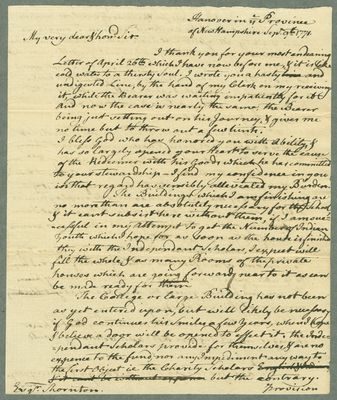 Hanover in ye Province
of New Hampshire Sepr 9th 1771.
My very dear & hond Sir
I thank you for your most endearing
Letter of April 26th which I have now before me, & it is like
cold water to a thirsty Soul. I wrote you a hasty and
undigested Line, by the hand of my Clerk on my receiving
it, while the Bearer was waiting impatiently for it.
And now the case is nearly the same, the Bearer
being just setting out on his Journey, & gives me
no time but to throw out a few hints.
I bless God who has honored you with Ability &
has so largely opened your Heart to serve the cause
of the Redeemer with his Goods which he has committed
to your Stewardship — I find my confidence in you
in that regard has sensibly alleviated my Burden.
The Buildings which I am finishing are
no more than are absolutely necessary for the
& it cant subsist here without them, if I am suc-
cessful in my attempt to get the Number of Indian
Youth which I hope for as soon as the house is finished
they with the Independant Scholars I expect will
fill the whole & as many Rooms of the private
houses which are going forward near to it as can
be made ready for them.
The College or large Building has not been
as yet entered upon, but will likely be necessary
if God continues his smiles a few Years, when I hope
& believe a door will be opened to effect it. The Inde-
pendant Scholars provide for themselves, & are no
expence to the fund, nor any Impediment any way to
the first Object i.e. the Charity Scholars
but the contrary.
Esqr. Thornton.
Provision